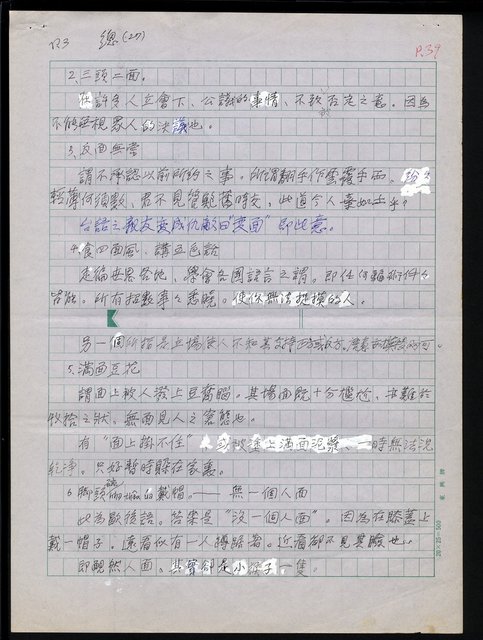 P.3 總(27) P.39
2.三頭二面。
在許多人立會下、公議的事情、不敢否定之意。因為
不能無視眾人的決議也。
3.反面無常
謂不承認以前所約之事。所謂翻手作雲覆手雨、紛紛
輕薄何須數、君不見管鮑貧時交、此道今人棄如土乎。
台語之親友變成仇敵曰"反面"即此意。
4.食四面風、講五色話
走遍世界各地、學會各國語言之謂。即任何
皆能。所有招數事々悉曉。使你無法捉摸的人。
另一個所指是立場使人不知其支持
5.滿面豆花
謂面上被人潑上豆腐腦。其場面既十分尷尬、亦難於
收拾之狀、無面見人之窘態也。
有"面上掛不住" 被塗上滿面泥漿、一時無法洗
乾淨。只好暫時躲在家裏。
6.腳頭 戴帽。——無一個人面
此為歇後語。答案是"沒一個人面"。因為在膝蓋上
戴一帽子。遠看似有一人蹲踞著。近看卻不見其臉也。
即靦然人面、其實卻是小猴子一隻。
20×25=500